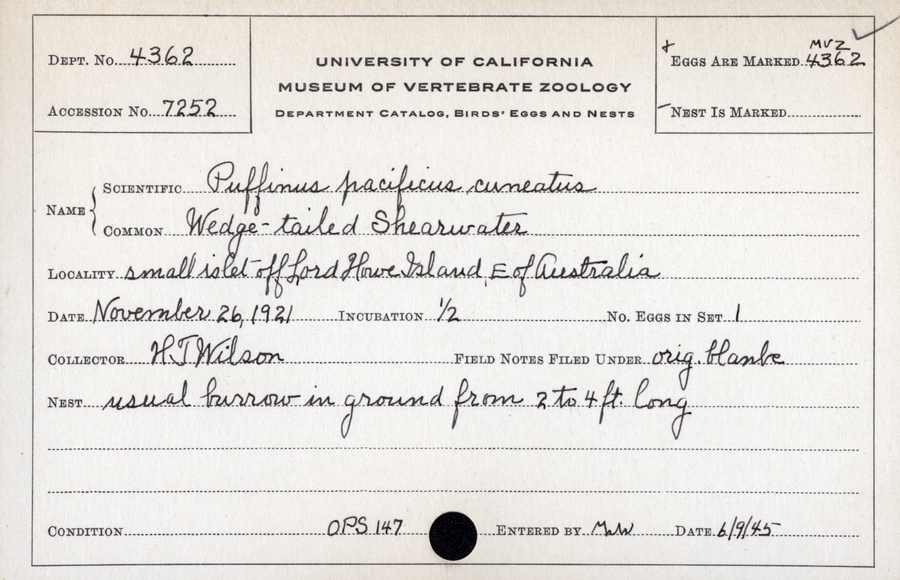 Dept. No. 4362
Accession No. 7252
UNIVERSITY OF CALIFORNIA
MUSEUM OF VERTEBRATE ZOOLOGY
Department Catalog, Birds' Eggs and Nests
MVZ
Eggs Are Marked 4362
Nest Is Marked
Name
Scientific Puffinus pacificus cuneatus
Common Wedge-tailed Shearwater
Locality small islet off Lord Howe Island, E of Australia
Date November 26, 1921 Incubation 1/2 No. Eggs in Set 1
Collector H.J. Wilson Field Notes Filed Under orig. blanke
Nest usual burrow in ground from 2 to 4 ft. long
Condition OPS 147 Entered by Date 6/9/45